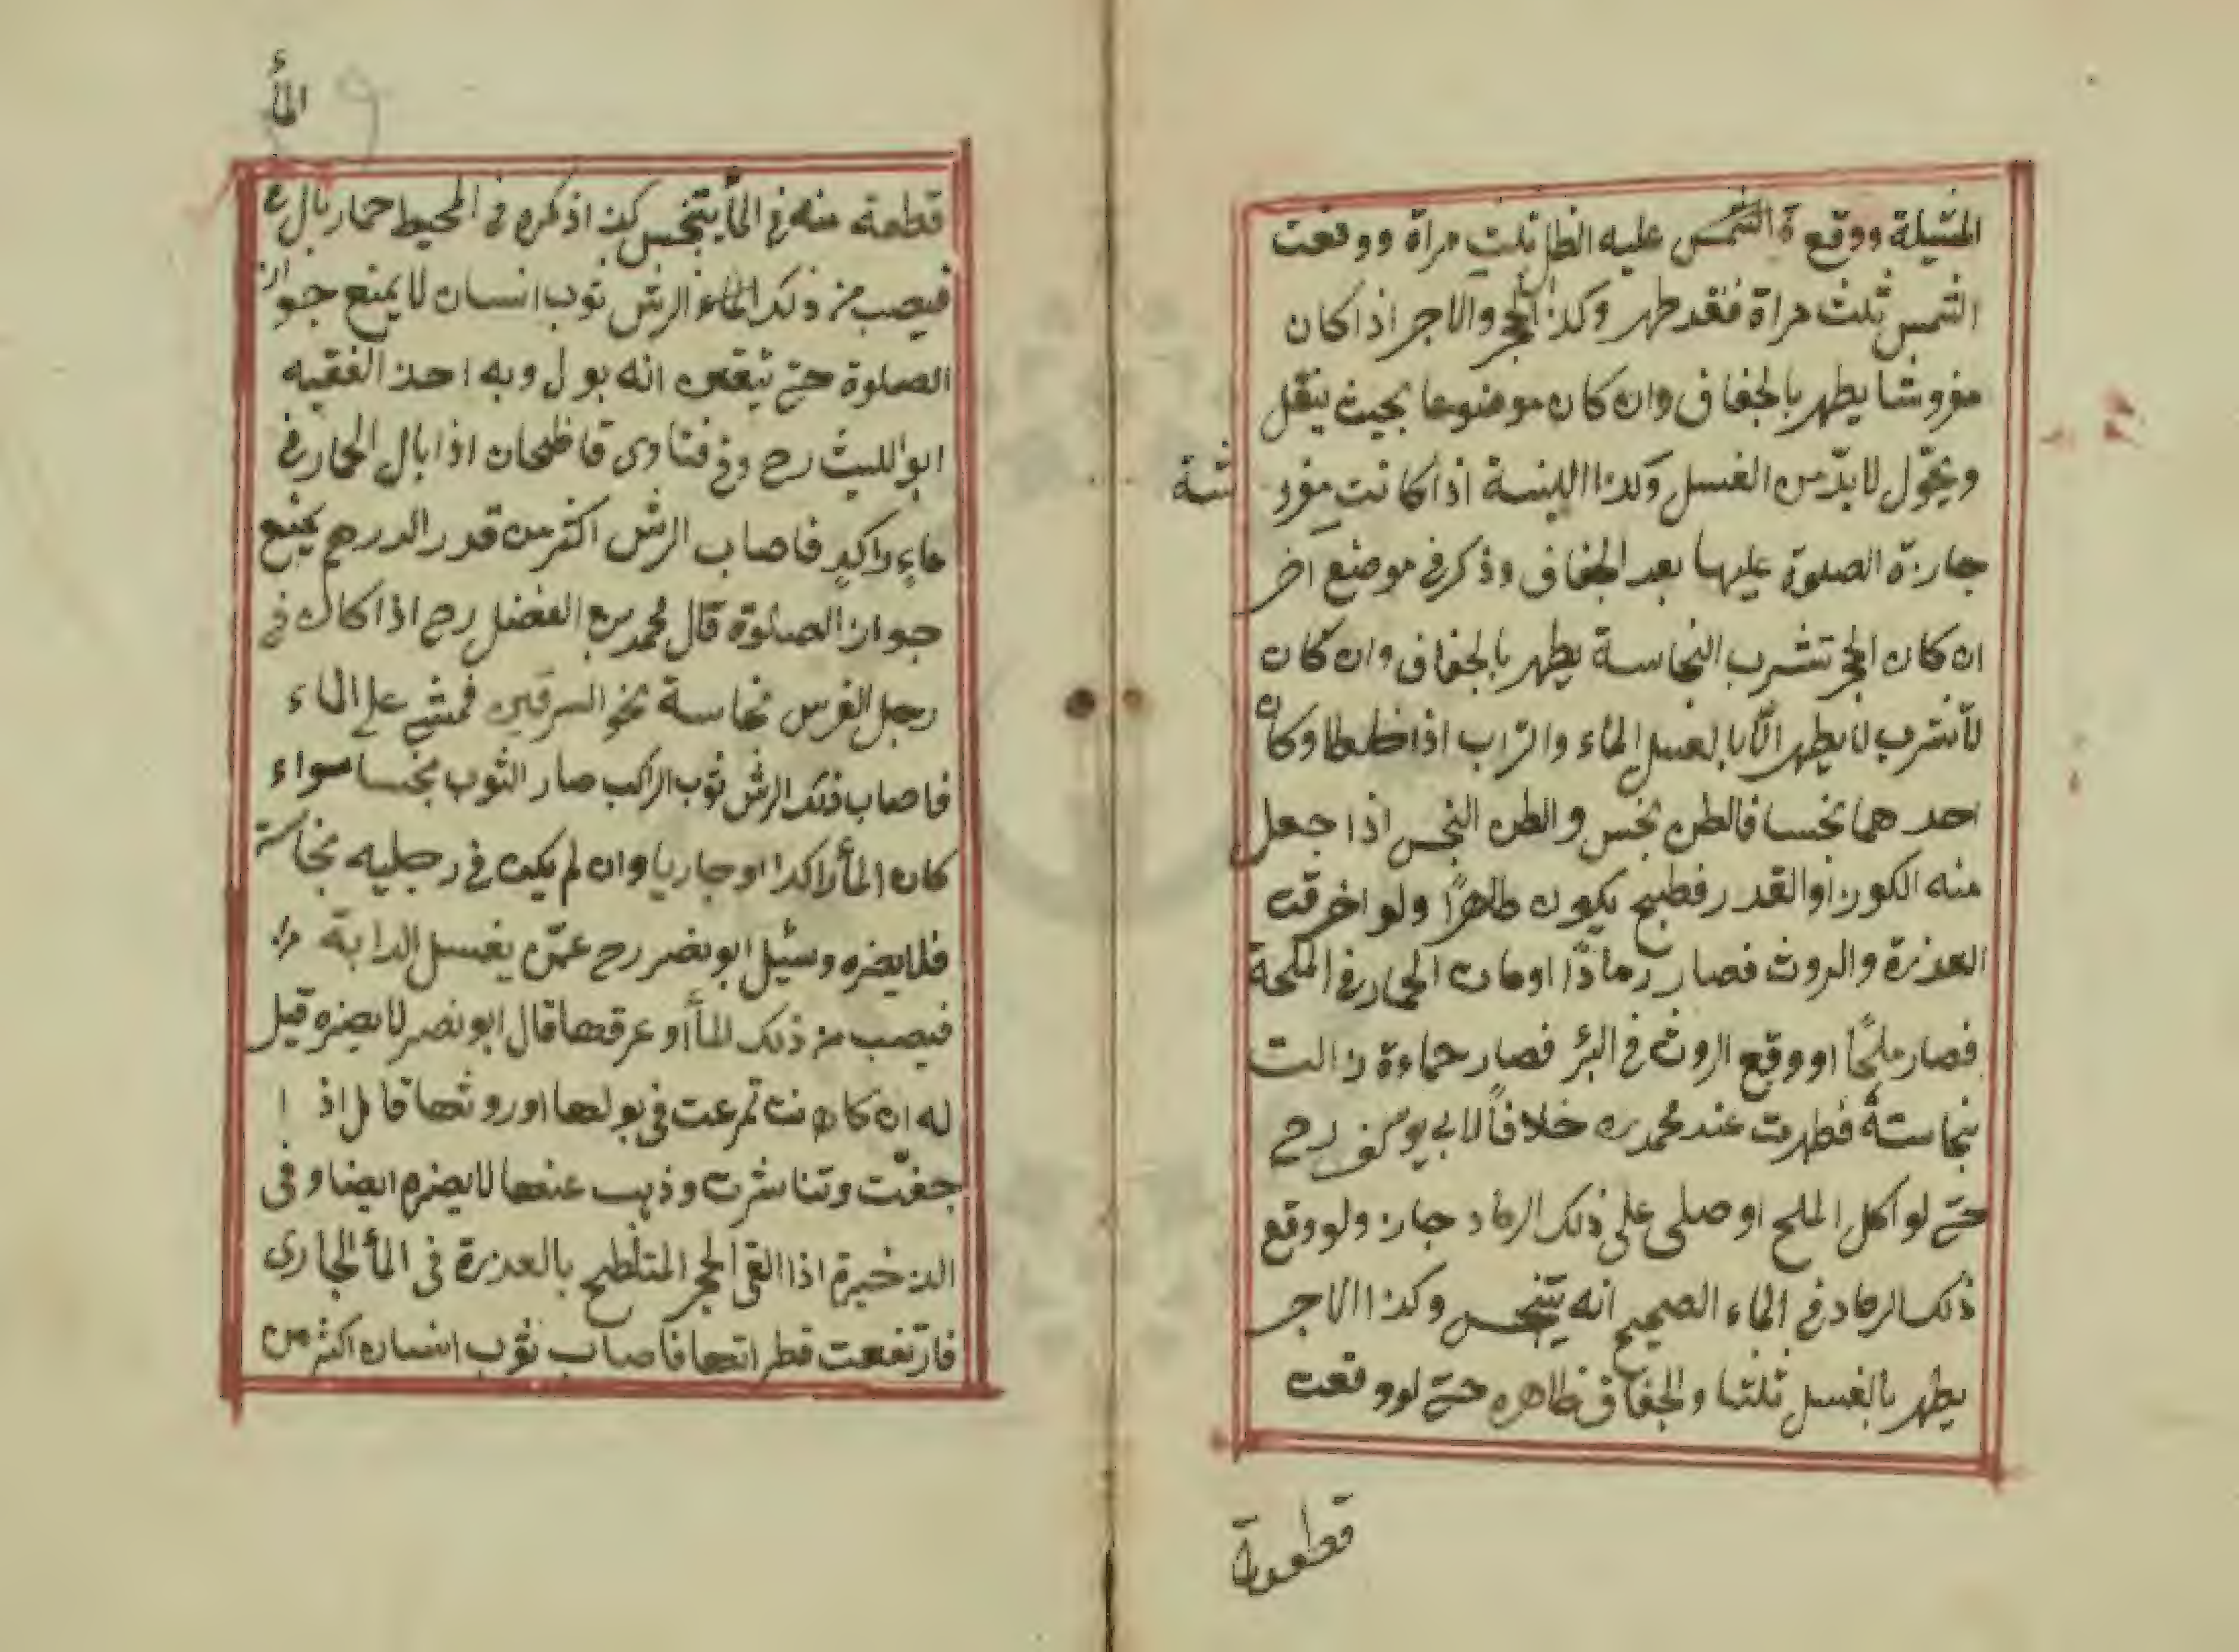 المثيلة ووقع ة الشمس عليه الظل ثلث مراة ووقعت
الشمس ثلث مراة فقد طهر وكذا الحجر والاجر اذا كان
مفروشا يطهر بالجفاف وان كان موضوعا بحيث ينقل
ويحوّل لا بدّ من الغسل وكذا اللبنة اذا كانت مفرو شة
جازة الصلوة عليها بعد الجفاف وذكر في موضع اخر
ان كان الحجر تشرب النجاسة يطهر بالجفاف وان كان
لا تشرب لا يطهر الّا بالغسل الماء والتراب اذا خلطا وكان
احد هما نجسا فالطن نجس والطن النجس اذا جعل
منه الكوز او القدر فطبخ يكون طاهرًا ولو احرقت
العذرة والروث فصار رمادًا او مات الحمار في الملحة
فصار ملحًا او وقع الروث في البئر فصار حماءة زالت
نجاسته فطهرت عند محمد ره خلافاً لابي يوسف رح
حتى لو اكل الملح او صلى على ذلك الرماد جاز ولو وقع
ذلك الرماد في الماء الصحيح انه يتنجس وكذا الاجر
يطهر بالغسل ثلثا والجفاف ظاهره حتى لو وقعت
قطعة
الماْء
قطعة منه في الماْء يتنجس كذا ذكره في المحيط حمار بال في
فيصب من ذلك الماء الرش ثوب انسان لا يمنع جواز
الصلوة حتى تيقن انه بول وبه اخذ الفقيه
ابو الليث رح وفي فتاوى قاظيخان اذا بال الحمار في
ماءٍ راكدٍ فاصاب الرش اكثر من قدر الدرهم يمنع
جواز الصلوة قال محمد بن الفضل رح اذا كان في
رجل الفرس نجاسة نحو السرقين فمشى على الماء
فاصاب ذلك الرش ثوب الراكب صار الثوب نجسا سواء
كان الماْء راكدا او جاريا وان لم يكن في رجليه نجاسة
فلا يضره وسئل ابو نصر رح عمّن يغسل الدابة
فيصب من ذلك الماْء او عرقها قال ابو نصر لا يضره قيل
له ان كان نت تمرغت في بولها او روثها قال اذ ا
جفّت وتناثرت وذهب عنها لا يضره ايضا وفي
الذخيرة اذا القى الحجر المتلطخ بالعذرة في الماْء الجارى
فارتفعت قطراتها فاصاب ثوب انسان اكثر من